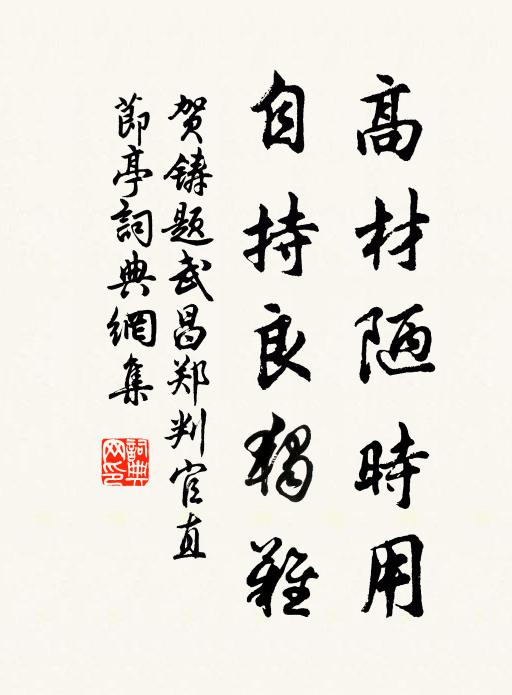 高材陋時用
自持良獨難
贺鑄题武昌郑判官直
節亭詞典網集
詞典网印